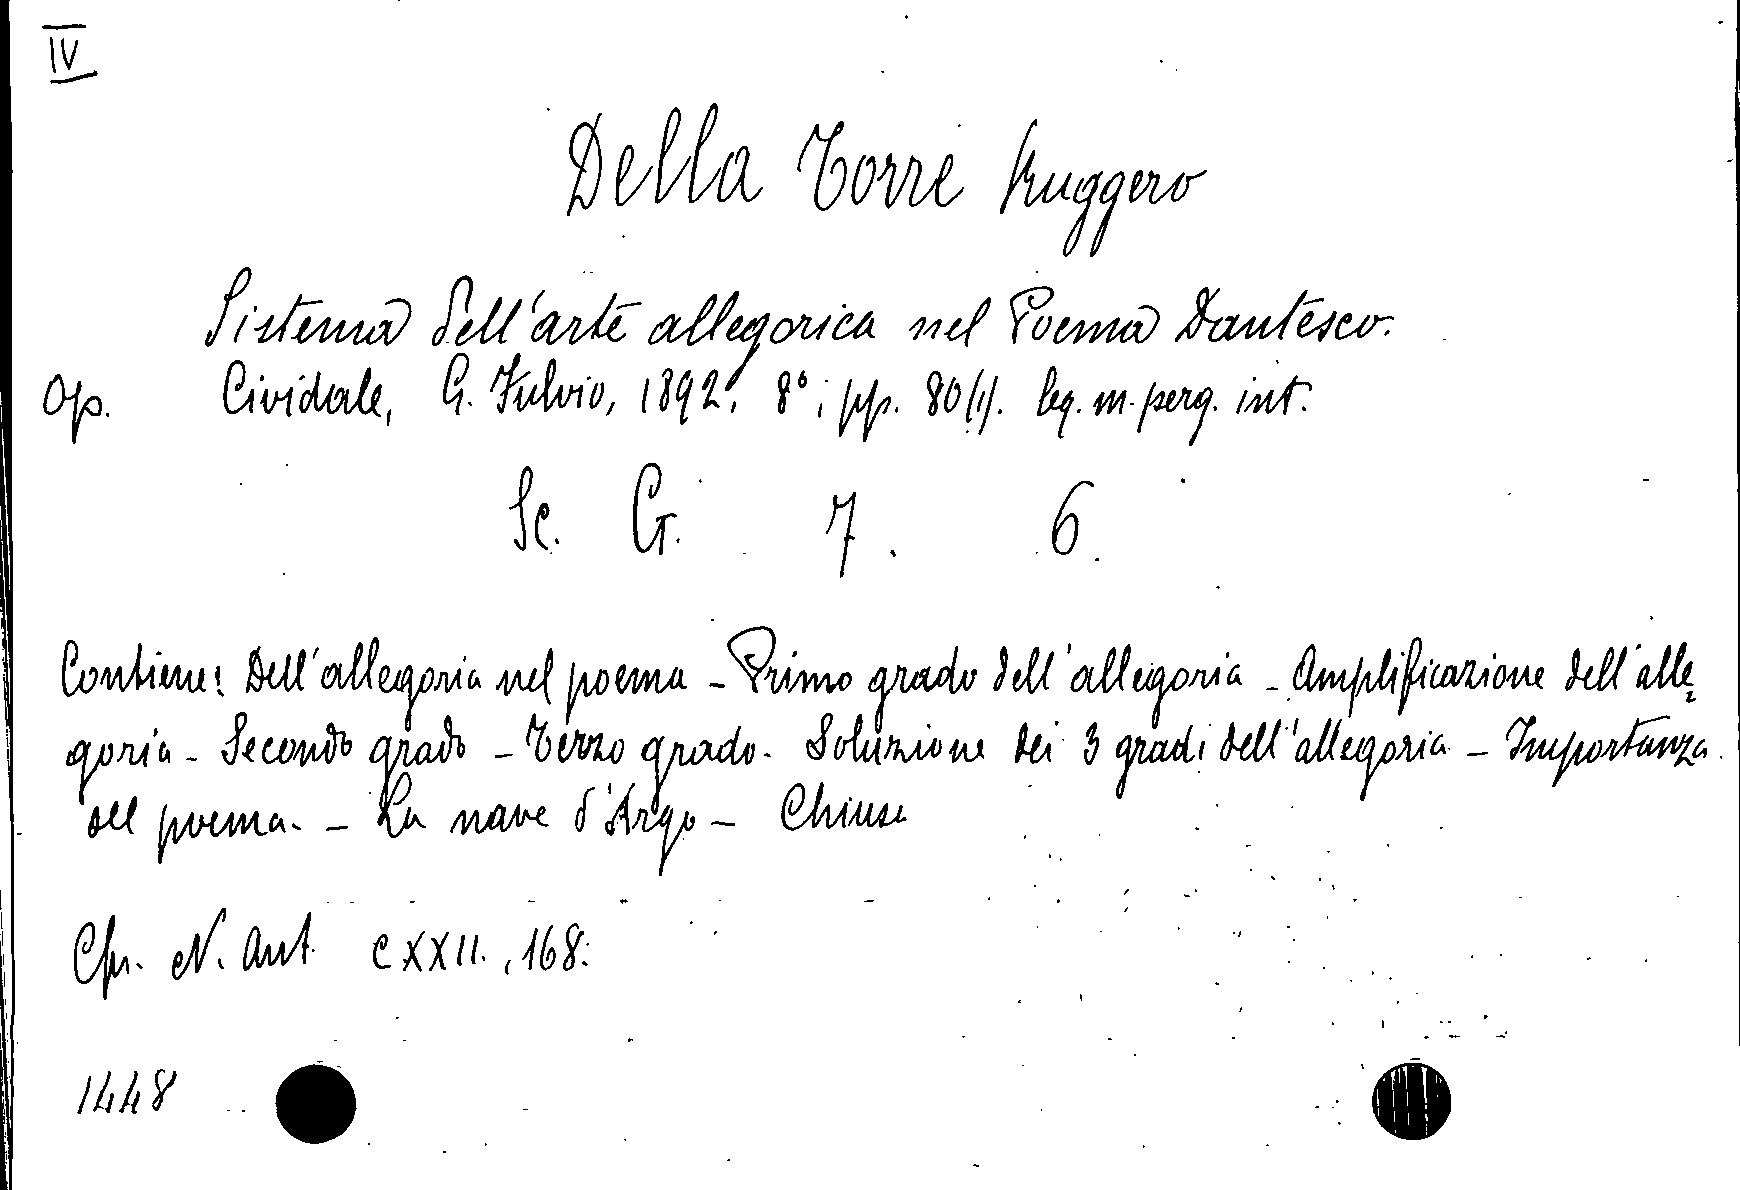 IV
Della Torre Ruggero
Sistema dell'arte allegorica nel Poema Dantesco.
Op. Cividale, G. Fulvio, 1892. 8°; pp. 80(1). leg. m. perg. int.
Sc. G. 7. 6.
Contiene: Dell'allegoria nel poema - Primo grado dell'allegoria - Amplificazione dell'alle=
goria - Secondo grado - Terzo grado - Soluzione dei 3 gradi dell'allegoria - Importanza
del poema. - La nave d'Argo - Chiusa
Cfr. N. Ant. CXXII., 168.
1448